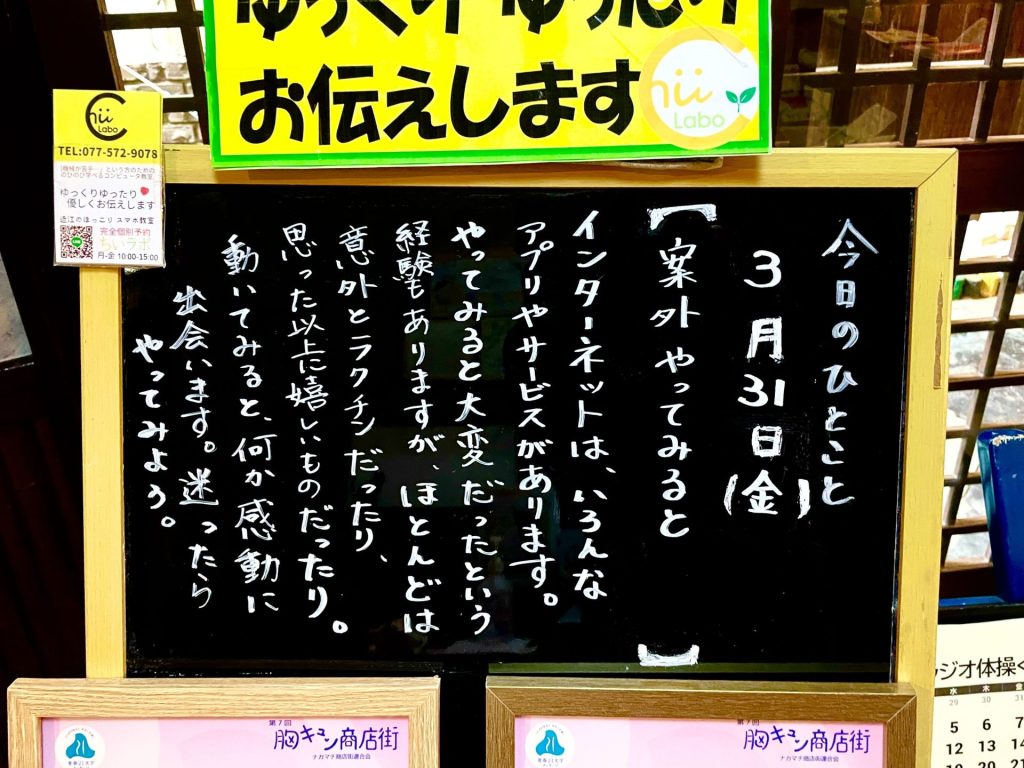 ゆっくり ゆったり
お伝えします
Chii
Labo
Chii
Labo
TEL:077-572-9078
「機械が苦手…」という方のための
のびのび学べるコンピュータ教室
ゆっくりゆったり
優しくお伝えします
近江のほっこりスマホ教室
完全個別予約
ちいラボ
月-金 10:00-15:00
今日のひとこと
3月31日(金)
【案外やってみると】
インターネットは、いろんな
アプリやサービスがあります。
やってみると大変だったという
経験もありますが、ほとんどは
意外とラクチンだったり、
思った以上に嬉しいものだったり。
動いてみると、何か感動に
出会います。迷ったら
やってみよう。
第7回
胸キュン商店街
ナカマチ商店街連合会
第7回
胸キュン商店街
ナカマチ商店街連合会
ラジオ体操く
水 木 金
29 30 31
5 6 7
12 13 14
19 20 21